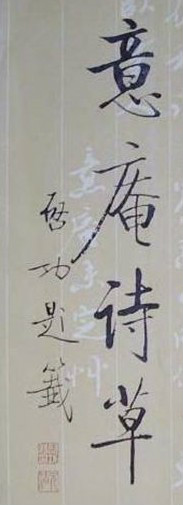 意庵诗草
启功题签